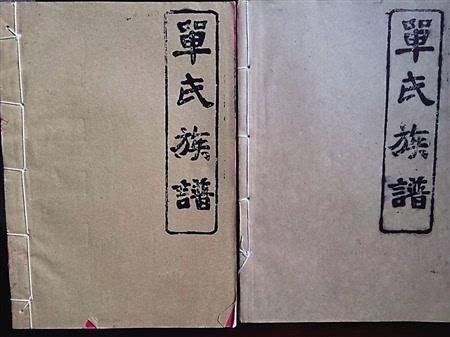 單氏族譜
單氏族譜